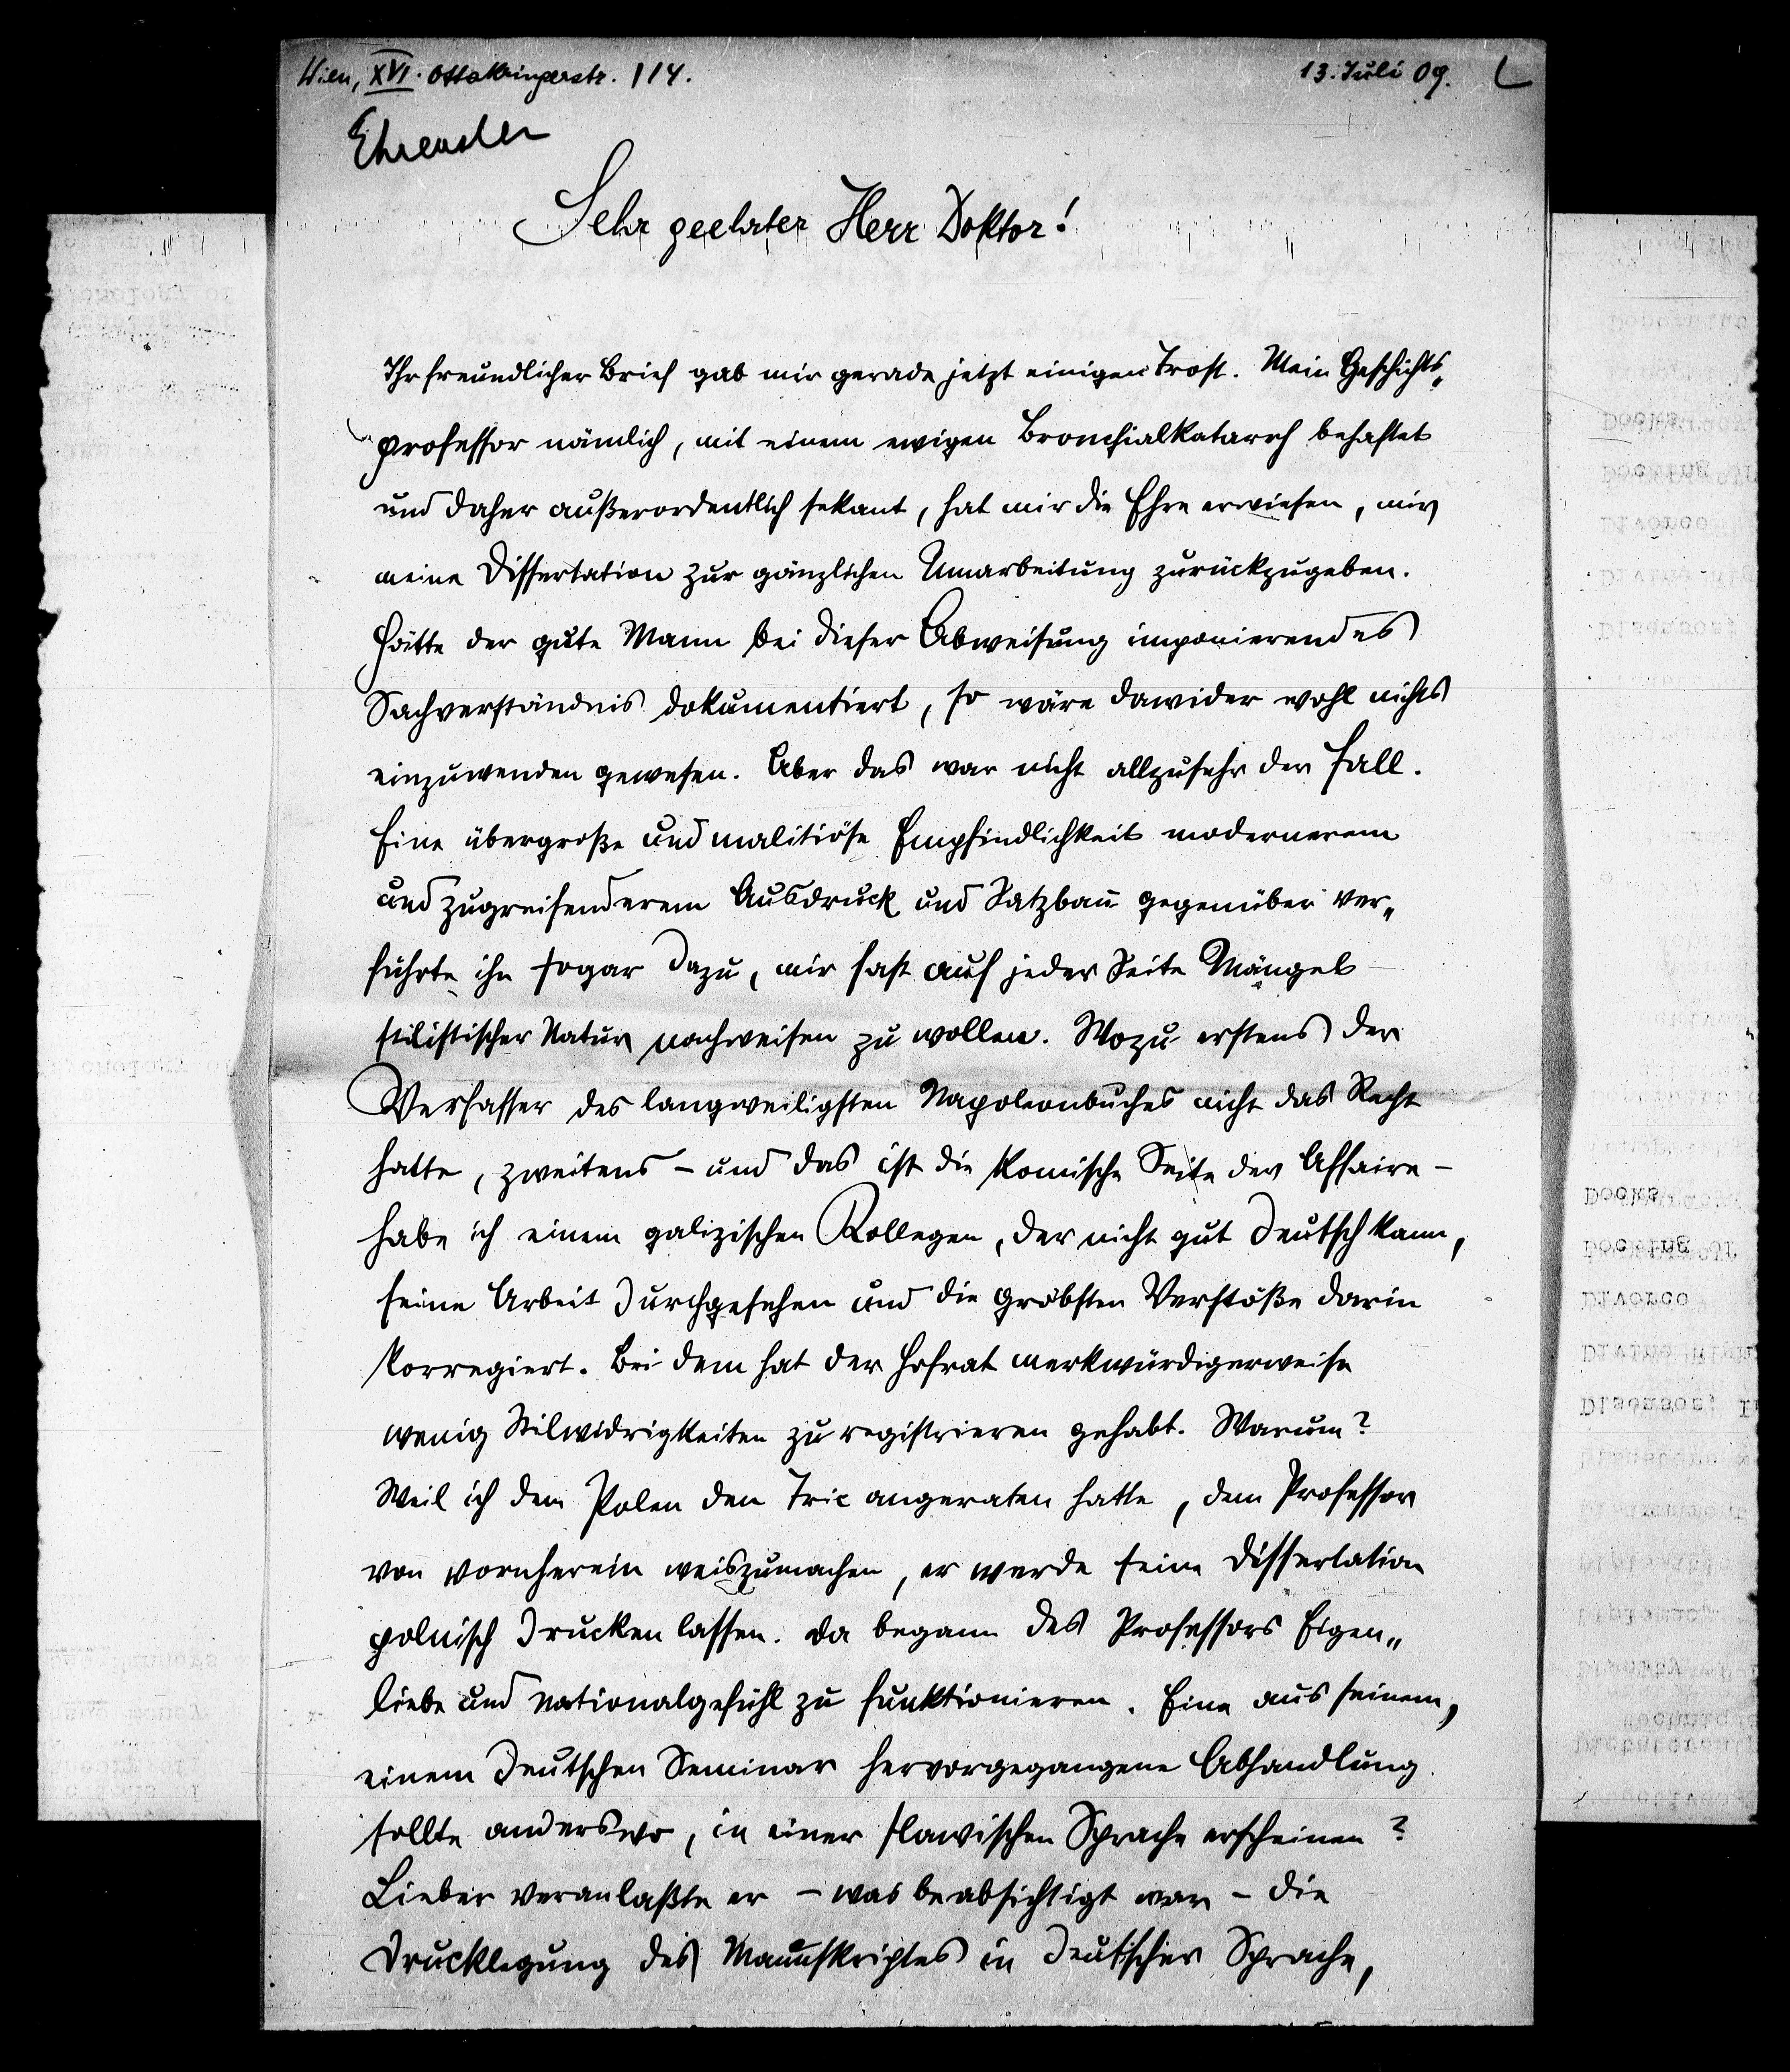 Wien, XVI. Ottakringerstr. 114.
13. Juli 09.
Sehr geehrter Herr Doktor!
Ihr freundlicher Brief gab mir gerade jetzt einigen Trost. Mein Geschichts„
professor nämlich, mit einem ewigen Bronchialkatarrh behaftet
und daher außerordentlich sekant, hat mir die Ehre erwiesen, mir
meine Dissertation zur gänzlichen Umarbeitung zurückzugeben.
Hätte der gute Mann bei dieser Abweisung imponierendes
Sachverständnis dokumentiert, so wäre dawider wohl nichts
einzuwenden gewesen. Aber das war nicht allzusehr der Fall.
Eine übergroße und malitiöse Empfindlichkeit modernerem
und zugreifenderem Ausdruck und Satzbau gegenüber ver„
führte ihn sogar dazu, mir fast auf jeder Seite Mängel
stilistischer Natur nachweisen zu wollen. Wozu erstens der
Verfasser des langweiligsten Napoleonbuches nicht das Recht
hatte, zweitens – und das ist die komische Seite der Affaire –
habe ich einem galizischen Kollegen, der nicht gut Deutsch kann,
seine Arbeit durchgesehen und die gröbsten Verstöße darin
korregiert. Bei dem hat der Hofrat merkwürdigerweise
wenig Stilwidrigkeiten zu registrieren gehabt. Warum?
Weil ich dem Polen den Tric angeraten hatte, dem Professor
von vornherein weiszumachen, er werde seine Dissertation
polnisch drucken lassen. Da begann des Professors Eigen„
liebe und Nationalgefühl zu funktionieren. Eine aus seinem,
einem deutschen Seminar hervorgegangene Abhandlung
sollte anderswo, in einer slawischen Sprache erscheinen?
Lieber veranlaßte er – was beabsichtigt war – die
Drucklegung des Manuskriptes in deutscher Sprache,
Docks
Docking
Divorce